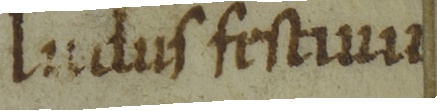 ludus festiuu